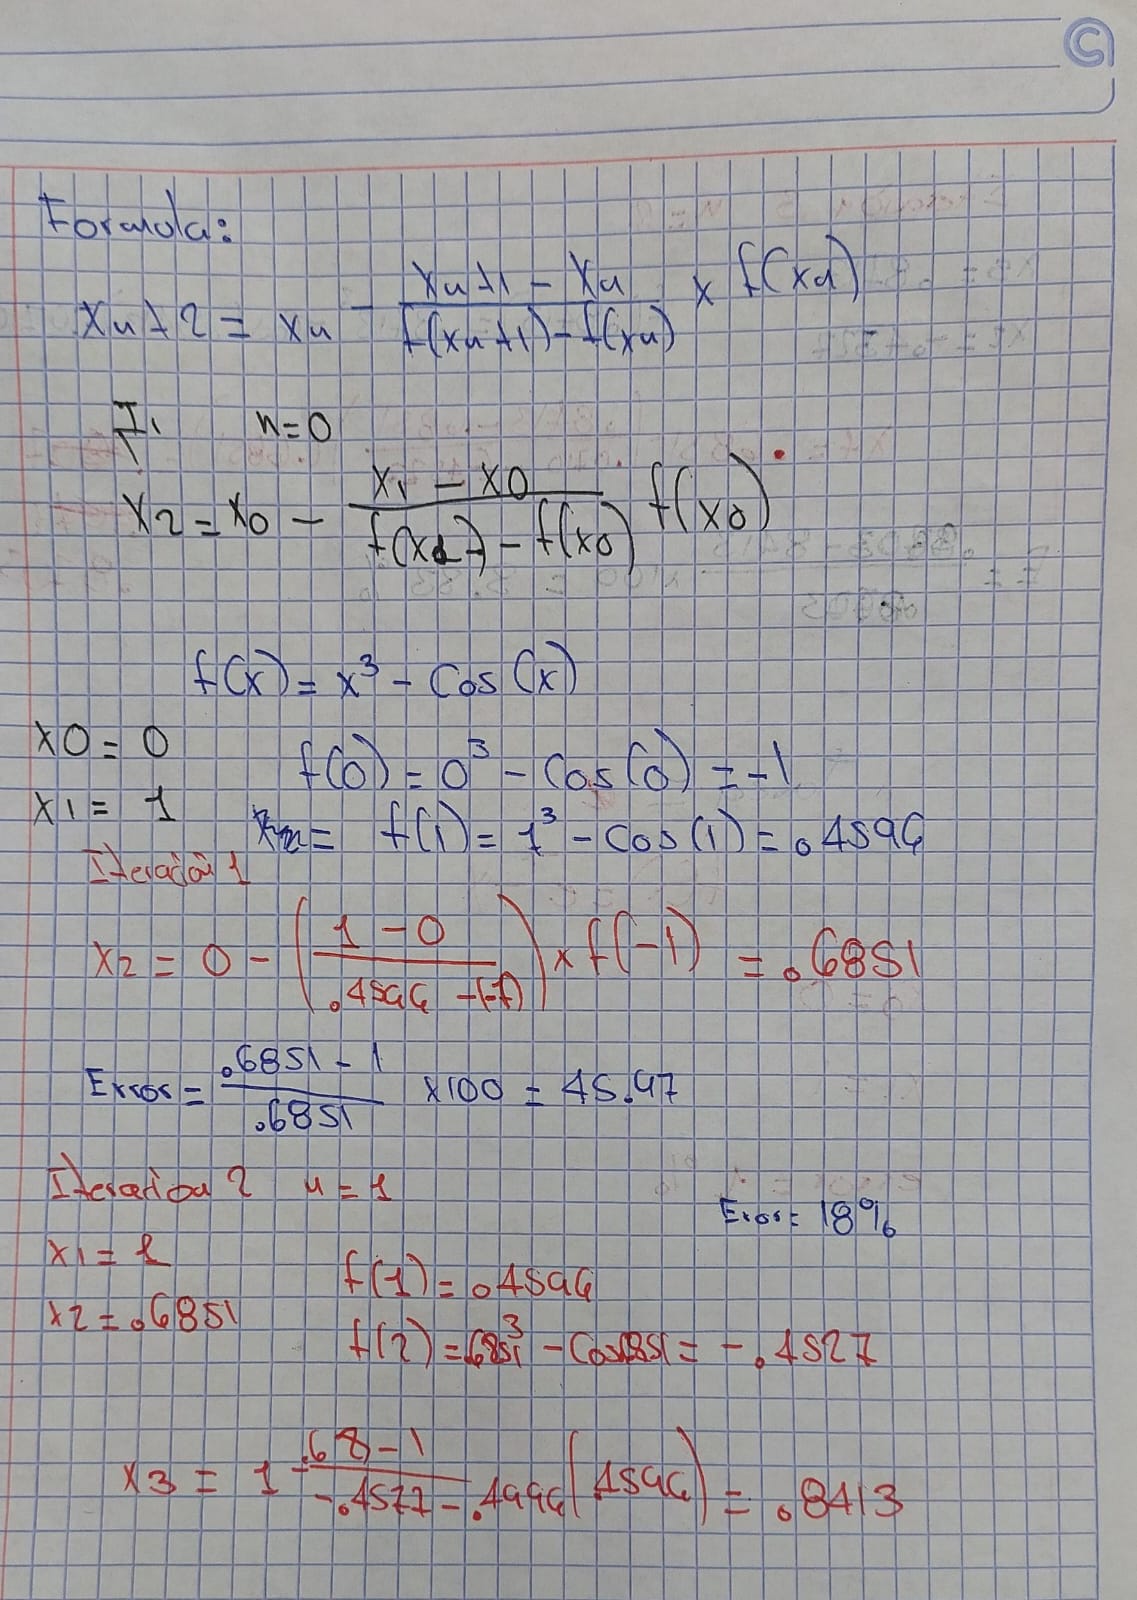 Formula:
xn+2 = xn - (xn+1 - xn)/(f(xn+1) - f(xn)) x f(xn)
I1 n=0
x2 = x0 - (x1 - x0)/(f(x1) - f(x0)) f(x0)
f(x) = x³ - Cos(x)
x0 = 0
f(0) = 0³ - Cos(0) = -1
x1 = 1
= f(1) = 1³ - Cos(1) = .4596
Iteración 1
x2 = 0 - ((1 - 0)/(.4596 - (-1))) x f(-1) = .6851
Error = (.6851 - 1)/.6851 x100 = 45.97
Iteracion 2 n = 1
Error = 18%
x1 = 1
f(1) = .4596
x2 = .6851
f(2) = .6851³ - Cos .6851 = -.4527
x3 = 1 - (.68 - 1)/(-.4527 - .4996) (.4596) = .8413